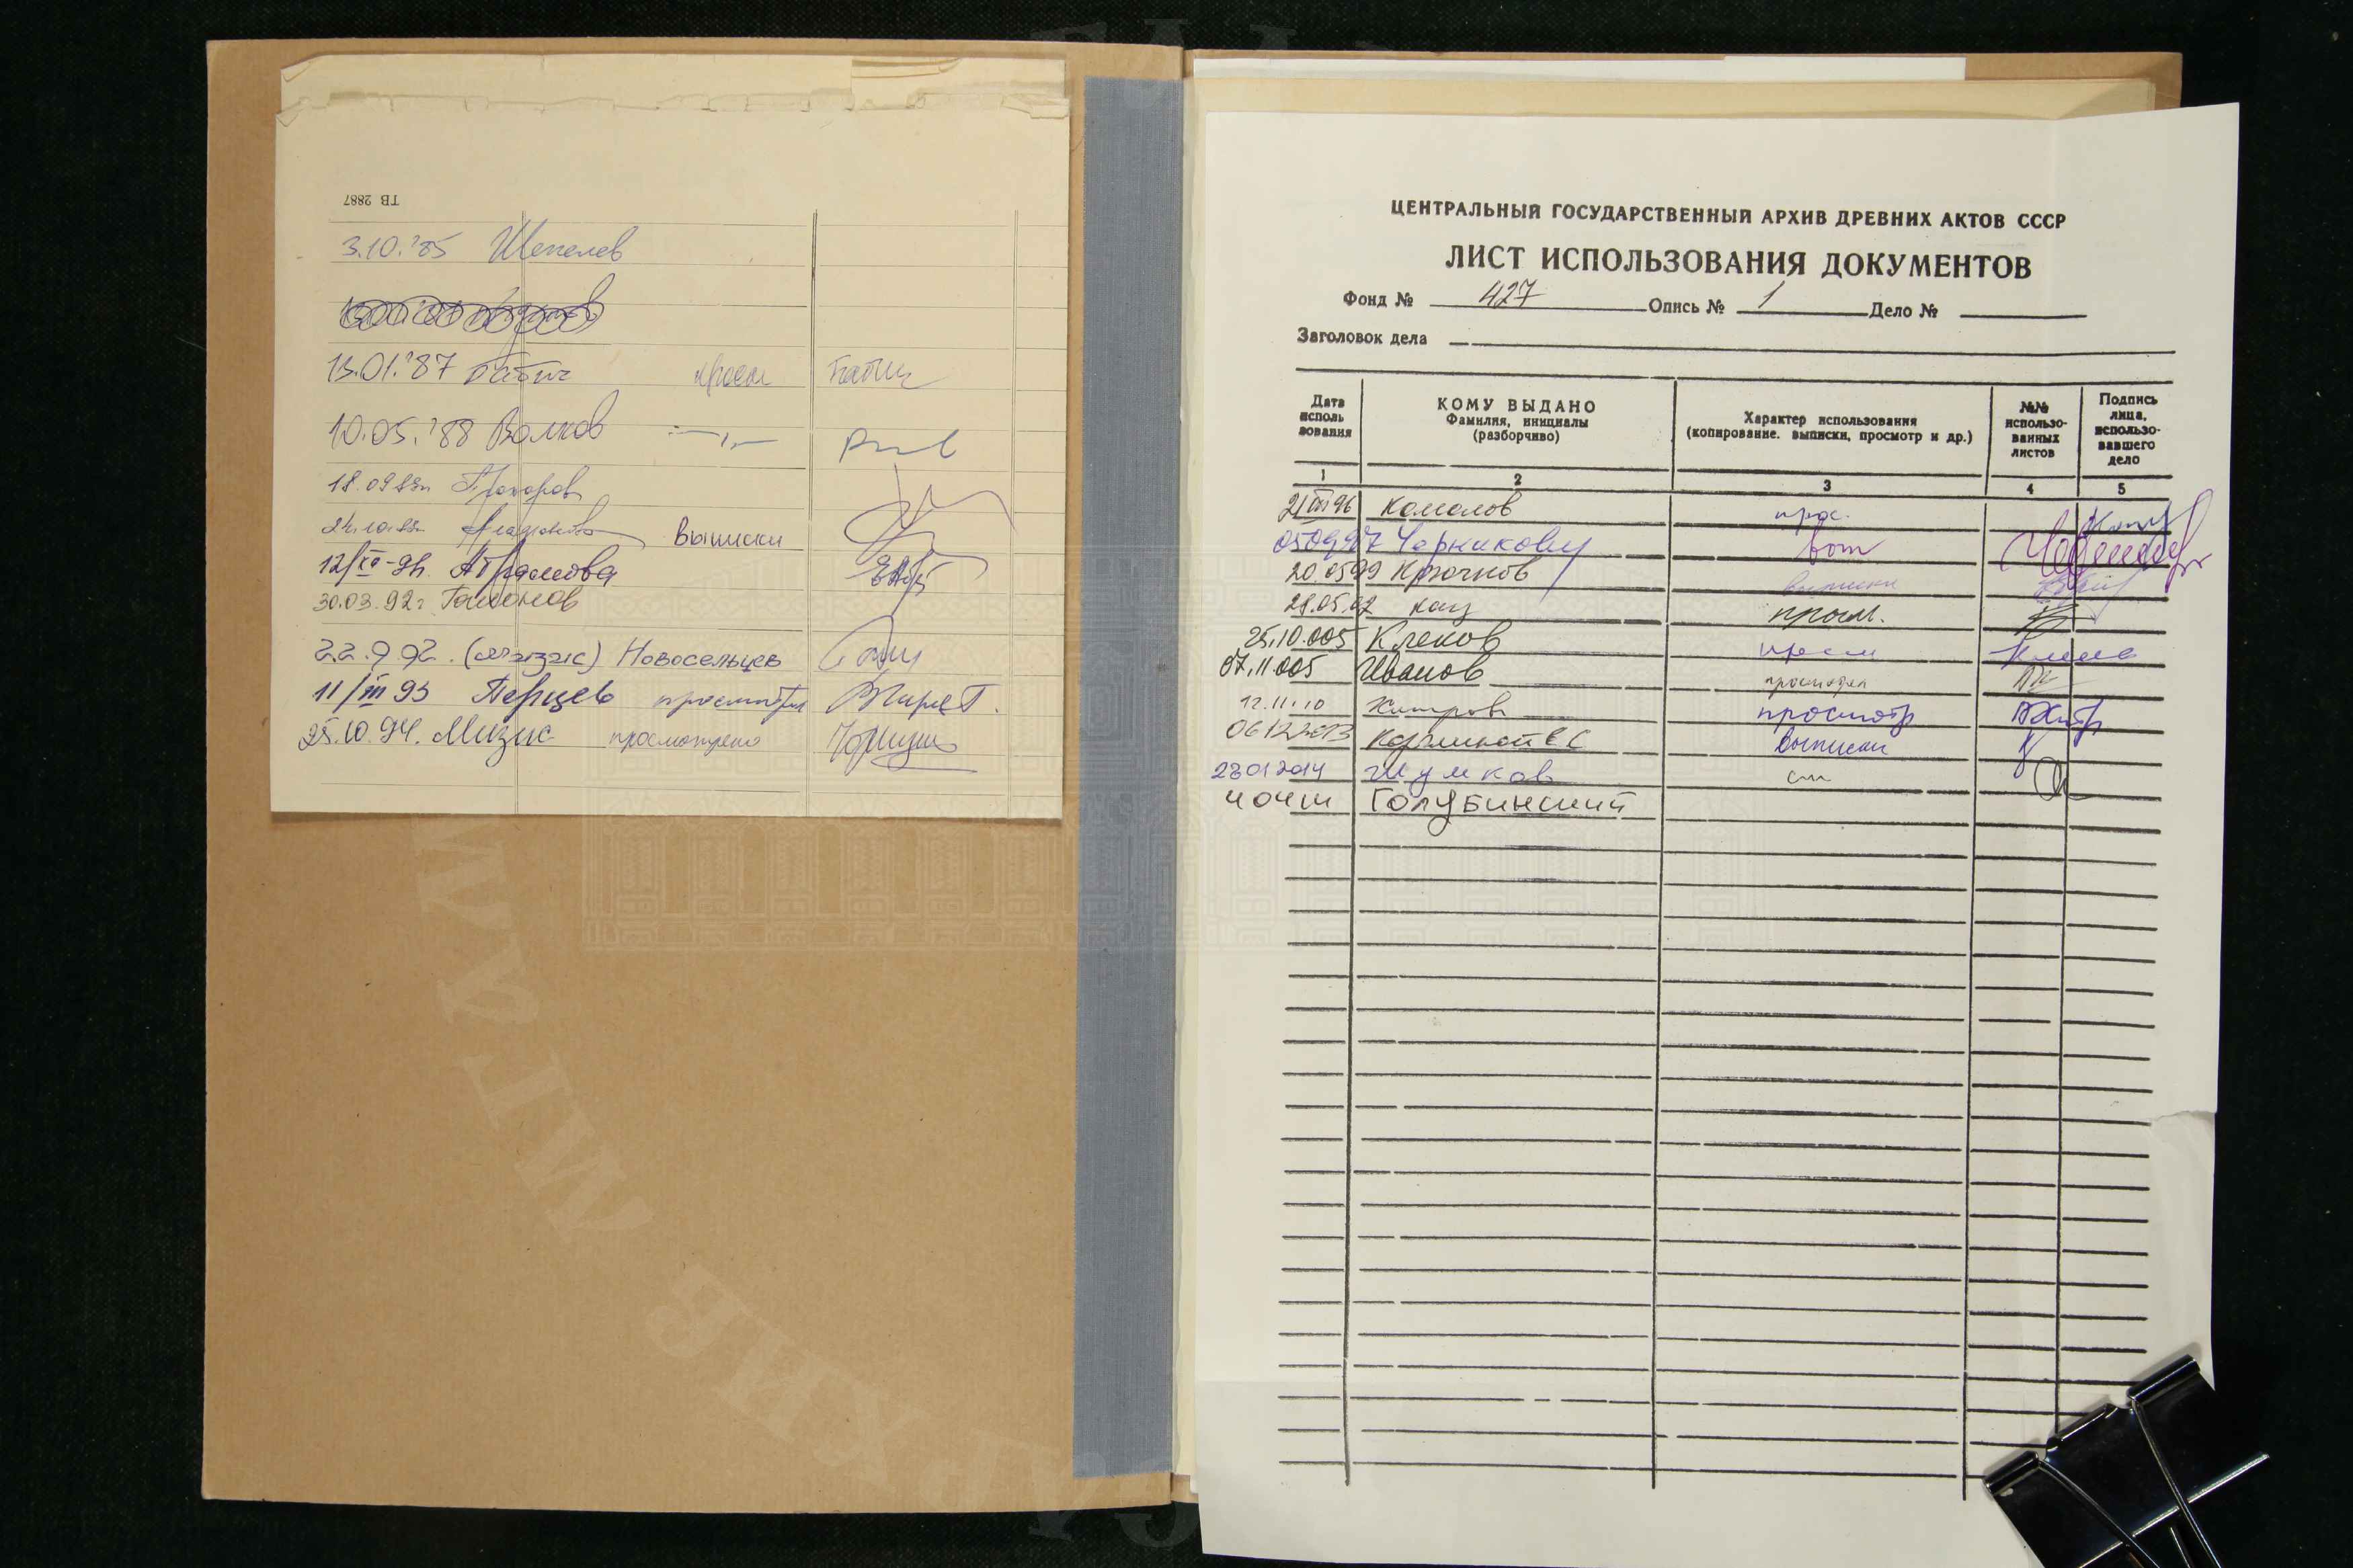 ТВ 2887
3.10.'85 Шепелев
13.01.'87 Бабич просм Бабич
10.05.'88 Волков —"—
18.09 Прохоров
выписки
12/XII Абрамова
30.03.92г Гапонов
22.9 92. (мэзэс) Новосельцев
11/III 93 Перцев просмотрел
25.10.94. Мизис просмотрено
ЦЕНТРАЛЬНЫЙ ГОСУДАРСТВЕННЫЙ АРХИВ ДРЕВНИХ АКТОВ СССР
ЛИСТ ИСПОЛЬЗОВАНИЯ ДОКУМЕНТОВ
Фонд № 427 Опись № 1 Дело №
Заголовок дела
Дата исполь зования
КОМУ ВЫДАНО Фамилия, инициалы (разборчиво)
Характер использования (копирование. выписки, просмотр и др.)
№№ использо- ванных листов
Подпись лица, использо- вавшего дело
1 2 3 4 5
21 III 96 Комолов прос.
050997 Черникову
20.0599 Крючков выписки
28.05.02 Кац просм.
25.10.005 Клеков просм
07.11.005 Иванов просмотрел
12.11.10 Хитров просмотр
06122013 выписки
23012014 Шумков
Голубинский